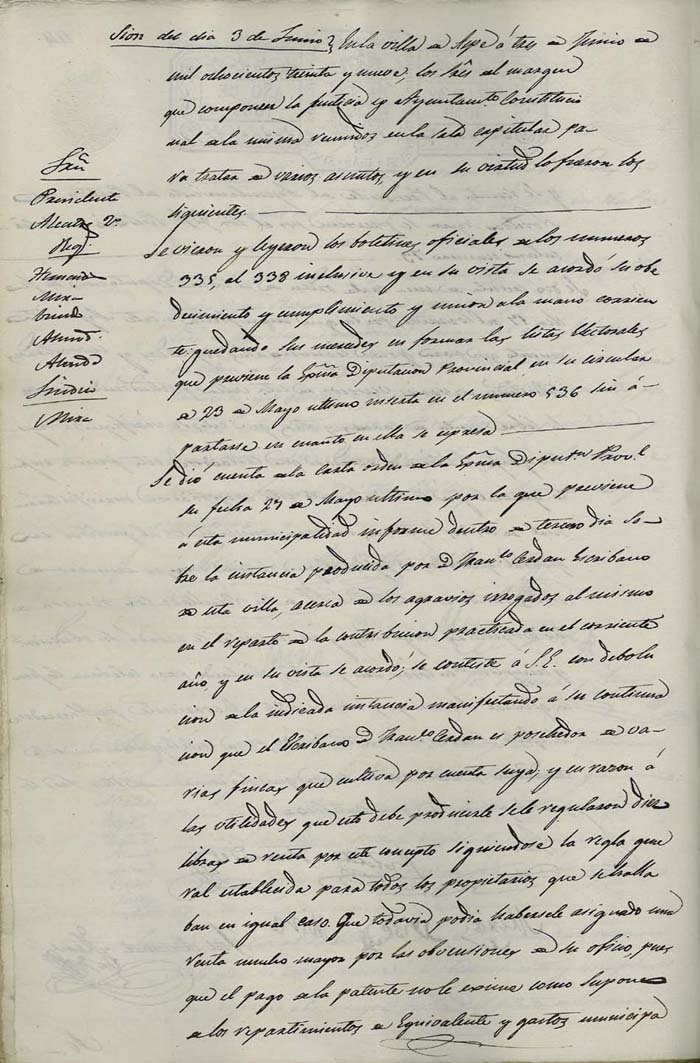 Sion del dia 3 de Junio} En la villa de Aspe á tres de Junio de
mil ochocientos treinta y nueve, los Sres al margen
que componen la justicia y Ayuntamto Constitucio
nal de la misma reunidos en la sala capitular pa-
ra tratar de varios asuntos, y en su virtud lo fueron los
siguientes
Sres
Presidente
Alcalde 2o
Regs
Mira
Almod.
Síndico
Mira
Se vieron y leyeron los boletines oficiales de los numeros
335, al 338 inclusive y en su vista se acordó su obe
decimiento y cumplimiento y union a la mano corrien
te: quedando sus mercedes en formar las listas electorales
que previene la Exma Diputacion Provincial en su circular
de 23 de Mayo ultimo inserta en el numero 536 sin á-
partarse en cuanto en ella se espresa
Se dió cuenta de la Carta orden de la Exma Diputon Provl
su fecha 27 de Mayo ultimo por la que previene
á esta municipalidad informe dentro de tercero dia so-
bre la instancia producida por D Franco Cerdan Escribano
de esta villa, acerca de los agravios irrogados al mismo
en el reparto de la contribucion practicada en el corriente
año, y en su vista se acordó; se conteste á S.E. con debolu
cion de la indicada instancia manifestando á su continua
cion que el Escribano D Franco Cerdan es poschedor de va-
rias fincas que cultiva por cuenta suya, y en razon á
las utilidades que esto debe producirle se le regularon diez
libras de renta por este concepto siguiendose la regla gene
ral establecida para todos los propietarios que se halla
ban en igual caso. Que todavia podia habersele asignado una
renta mucho mayor por las obvenciones de su oficio, pues
que el pago de la patente no le exime como supone
de los repartimientos de Equivalente y gastos municipa